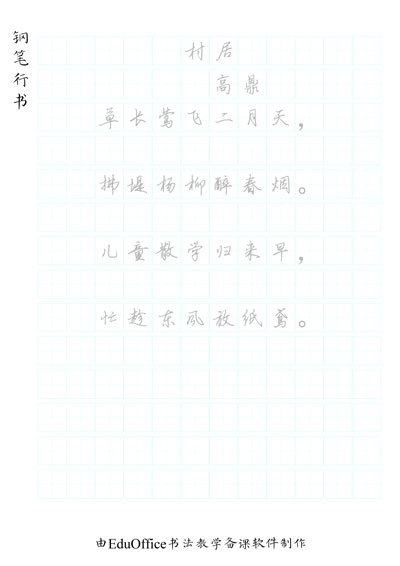 钢笔行书
村居
高鼎
草长莺飞二月天，
拂堤杨柳醉春烟。
儿童散学归来早，
忙趁东风放纸鸢。
由EduOffice书法教学备课软件制作